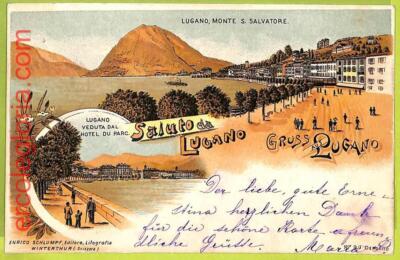 LUGANO, MONTE S. SALVATORE.
LUGANO
VEDUTA DAL
HOTEL DU PARC.
Saluto da
LUGANO
GRUSS
LUGANO
Der liebe, gute Erne-
stina herzlichen Dank
für die schöne Karte
dliche Grüße.
Maria
ENRICO SCHLUMPF, Editore, Litografia
WINTERTHUR (Svizzera)